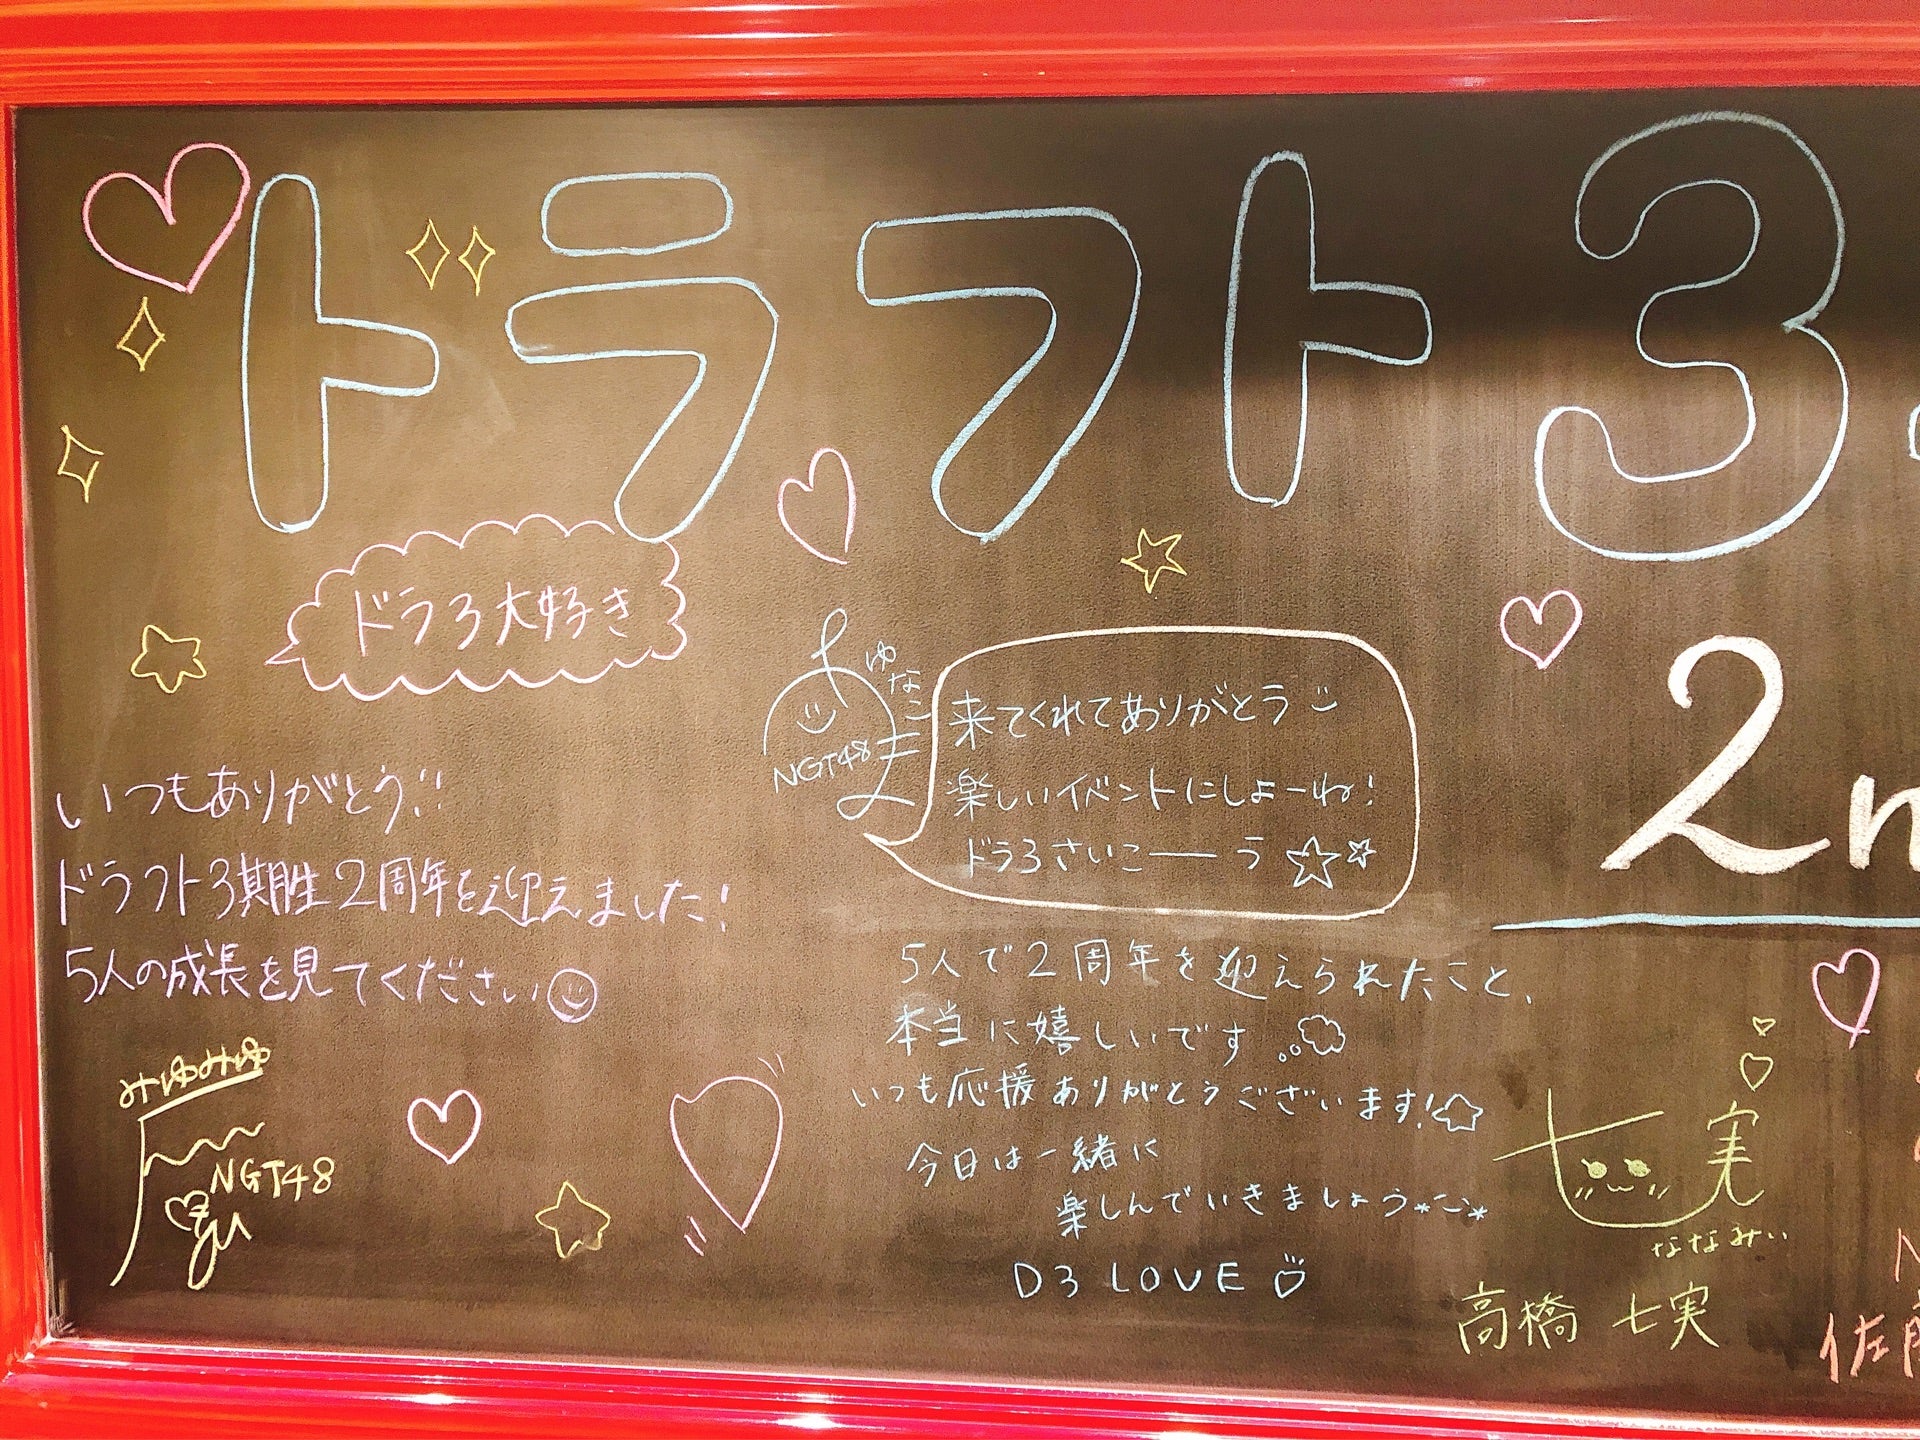 ドラフト3
ドラ3大好き
いつもありがとう!!
ドラフト3期生2周年を迎えました!
5人の成長を見てください
みゆみゆ
NGT48
ゆなこ
NGT48
来てくれてありがとう
楽しいイベントにしよーね!
ドラ3さいこーう
2n
5人で2周年を迎えられたこと、
本当に嬉しいです
いつも応援ありがとうございます!
今日は一緒に
楽しんでいきましょう
D3 LOVE
七実
ななみぃ
高橋 七実
佐